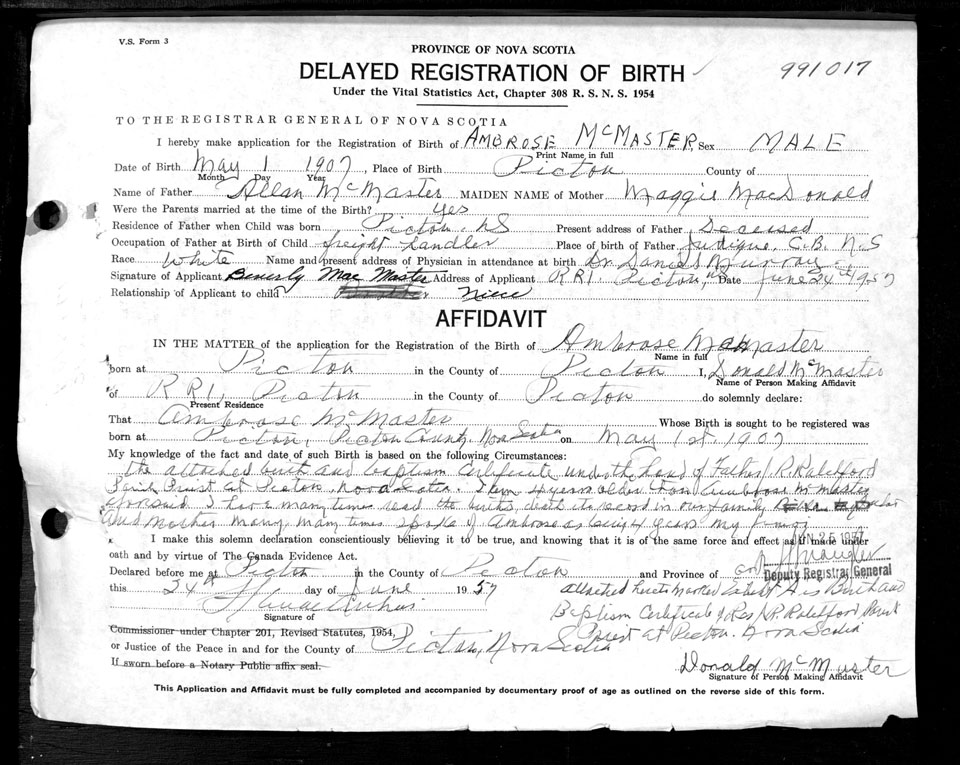 V.S. Form 3
PROVINCE OF NOVA SCOTIA
DELAYED REGISTRATION OF BIRTH
991017
Under the Vital Statistics Act, Chapter 308 R. S. N. S. 1954
TO THE REGISTRAR GENERAL OF NOVA SCOTIA
I hereby make application for the Registration of Birth of AMBROSE McMASTER, Sex MALE
Print Name in full
Date of Birth May 1 1907, Place of Birth Picton County of
Month Day Year
Name of Father Allan McMaster MAIDEN NAME of Mother Maggie MacDonald
Were the Parents married at the time of the Birth? Yes
Residence of Father when Child was born Picton, NS Present address of Father Deceased
Occupation of Father at Birth of Child freight handler Place of birth of Father Judique, C.B. N.S
Race White Name and present address of Physician in attendance at birth Dr Daniel Murray
Signature of Applicant Beverly Mac Master Address of Applicant RR1. Picton, NS Date June 24th 1957
Relationship of Applicant to child Niece
AFFIDAVIT
IN THE MATTER of the application for the Registration of the Birth of Ambrose McMaster
Name in full
born at Picton in the County of Picton I, Donald McMaster
Name of Person Making Affidavit
of RR1, Picton in the County of Picton do solemnly declare:
Present Residence
That Ambrose McMaster Whose Birth is sought to be registered was
born at Picton, Picton County, Nova Scotia on May 1st. 1907
My knowledge of the fact and date of such Birth is based on the following Circumstances:
The attached birth and baptism Certificate under the hand of Father R.
Parish Priest at Picton, Nova Scotia. I am 4 years older than Ambrose McMaster
aforesaid I have many times read the births, deaths record in our family
and Mother many, many times spoke of Ambrose as being 4 years my junior
I make this solemn declaration conscientiously believing it to be true, and knowing that it is of the same force and effect as if made under
oath and by virtue of The Canada Evidence Act.
JUN 25 1957
Deputy Registrar General
Declared before me at Picton in the County of Picton and Province of
this 24th day of June 1957
attached hereto marked Exhibit A is Birth and
Baptism Certificate of Rev. R. Parish
Priest at Picton. Nova Scotia
Signature of
Commissioner under Chapter 201, Revised Statutes, 1954,
or Justice of the Peace in and for the County of Picton, Nova Scotia
If sworn before a Notary Public affix seal.
Donald McMaster
Signature of Person Making Affidavit
This Application and Affidavit must be fully completed and accompanied by documentary proof of age as outlined on the reverse side of this form.